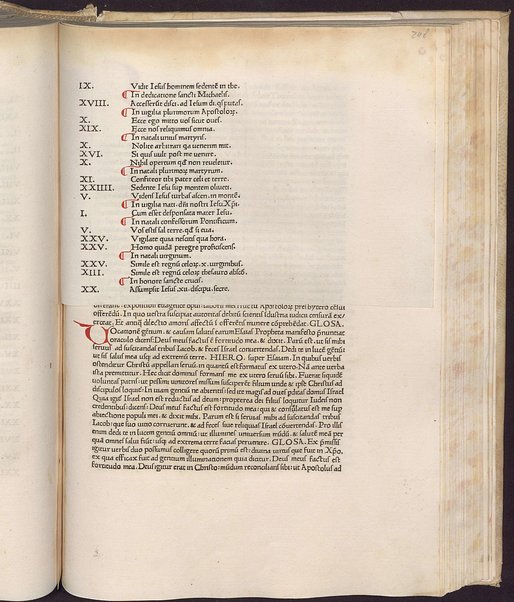 248
IX. Vidit Iesus hominem sedentē in the.
¶ In dedicatione sancti Michaelis.
XVIII. Accesserūt disci. ad Iesum di. qs putas.
¶ In uigilia plurimorum Apostoloꝝ.
X. Ecce ego mitto uos sicut oues.
XIX. Ecce nos reliquimus omnia.
¶ In natali unius martyris.
X. Nolite arbitrari qa uenerim mit.
XVI. Si quis uult post me uenire.
X. Nihil opertum qđ non reueletur.
¶ In natali plurimoꝝ martyrum.
XI. Confiteor tibi pater celi et terre.
XXIIII. Sedente Iesu sup montem oliueti.
V. Videns Iesus turbas ascen. in montē.
¶ In uigilia nati. dñi nostri Iesu Xpi.
I. Cum esset desponsata mater Iesu.
¶ In natali confessorum Pontificum.
V. Vos estis sal terre. qđ si eua.
XXV. Vigilate quia nescitis qua hora.
XXV. Homo quidā peregre proficiscens.
¶ In natali uirginum.
XXV. Simile est regnū celoꝝ. x. uirginibus.
XIII. Simile est regnū celoꝝ thesauro abscō.
¶ In honore sancte crucis.
XX. Assumpsit Iesus .xii. discipu. secre.
offerēdū. In quo uestra suscipiat autoritas debiti
eretae. Et amāti dilectio amoris affectū & offerēti munere cōprehēdat. GLOSA.
VOcationē gētium. & causam salutis earum Esaias Propheta manifesto pnuntiat
oraculo dicens: Deus meus factus ē fortitudo mea. & dixit. Parū est. ut sis mihi
seruus ad suscitandas tribus Iacob. & feces Israel conuertendas. Dedi te in lucē gētiū.
ut sis salus mea usqꝫ ad extremū terre. HIERO. super Esaiam. In quibus uerbis
ostenditur Christū appellari seruū. in quantū est formatus ex utero. Nā ante uerba
ista premittitur. Hec dicit dominus formans me ex utero seruū sibi. Fuerat siquidē
uoluntas patris: ut pessimi uinitores missum susciperēt filium
discipulos loquit: In uiam gentiū ne abieritis: sed ite magis ad oues pditas domus Israel
Quia igit̄ Israel non est reductus ad deum: propterea dei filius loquitur Iudeis non
credentibus: dicens: Deus meus factus est fortitudo mea: qui & consolatus est me sup
abiectione populi mei. & dixit mihi. Parum est si seruias mihi ad suscitandas tribus
Iacob: que suo uitio corruerunt. & ad feces siue reliquias Israel cōuertendas. Pro illis
enim dedi te in lucem gentiū omniū: ut illumines uniuersum mūdū. & salutē meā per
quā omnes salui fiūt: usqꝫ ad extrema terre facias peruenire. GLOSA. Ex pmissis
igitur uerbis duo possumus colligere quorū primū est: diuina uirtus que fuit in Xpo.
ex qua efficax fuit ad gentium illuminationem quia dicitur. Deus meus factus est
fortitudo mea. Deus igitur erat in Christo: mūdum reconcilians sibi: ut Apostolus ad